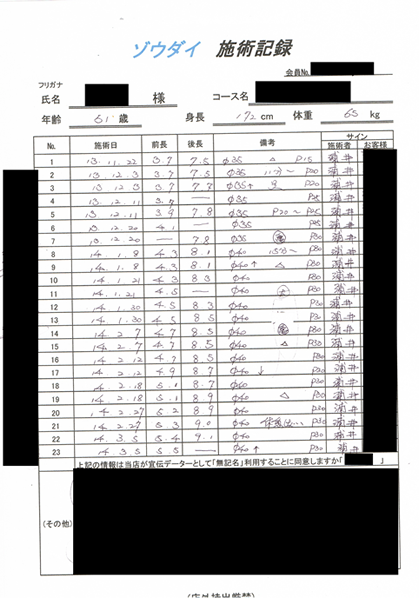 ゾウダイ 施術記録
会員No.
フリガナ
氏名 様 コース名
年齢 61 歳 身長 172 cm 体重 65 kg
サイン
No. 施術日 前長 後長 備考 施術者 お客様
1 13.11.22 3.7 7.5 φ35 △ P15 浦井
2 13.12.3 3.7 7.5 φ35 P20 浦井
3 13.12.3 3.7 7.7 φ35↑ P20 浦井
4 13.12.11 3.7 — φ35 P25 浦井
5 13.12.11 3.9 7.8 φ35 P20〜P25 浦井
6 13.12.20 4.1 — φ35 P25 浦井
7 13.12.20 — 7.8 φ35 P30 浦井
8 14.1.8 4.3 8.1 φ40 P30 浦井
9 14.1.8 4.3 8.1 φ40↑ △ P30 浦井
10 14.1.21 4.3 8.3 φ40 P30 浦井
11 14.1.21 4.5 — φ40 P30 浦井
12 14.1.30 4.5 8.3 φ40 P30 浦井
13 14.1.30 4.5 8.5 φ40 P30 浦井
14 14.2.7 4.7 8.5 φ40 P30 浦井
15 14.2.7 4.7 8.5 φ40 △ P30 浦井
16 14.2.12 4.7 8.5 φ40 P30 浦井
17 14.2.12 4.9 8.7 φ40 ↓ P30 浦井
18 14.2.18 5.1 8.7 φ40 P30 浦井
19 14.2.18 5.1 8.9 φ40 △ P30 浦井
20 14.2.27 5.2 8.9 φ40 P30 浦井
21 14.2.27 5.3 9.0 φ40 P30 浦井
22 14.3.5 5.4 9.1 φ40 P30 浦井
23 14.3.5 5.5 — φ40↑ P30 浦井
上記の情報は当店が宣伝データーとして「無記名」利用することに同意しますか「 」
(その他)